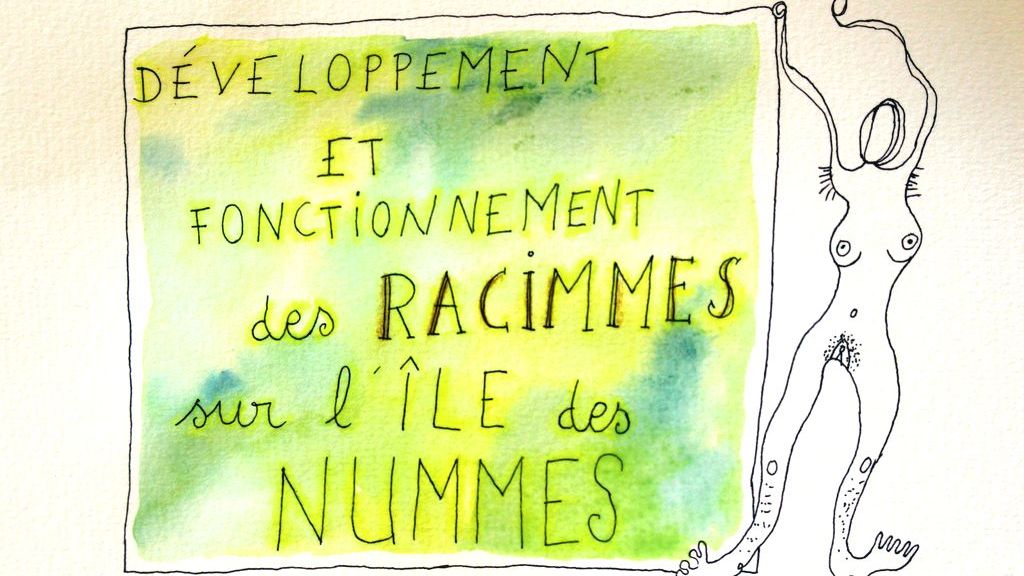 DÉVELOPPEMENT
ET
FONCTIONNEMENT
des RACIMMES
sur l'ÎLE des
NUMMES